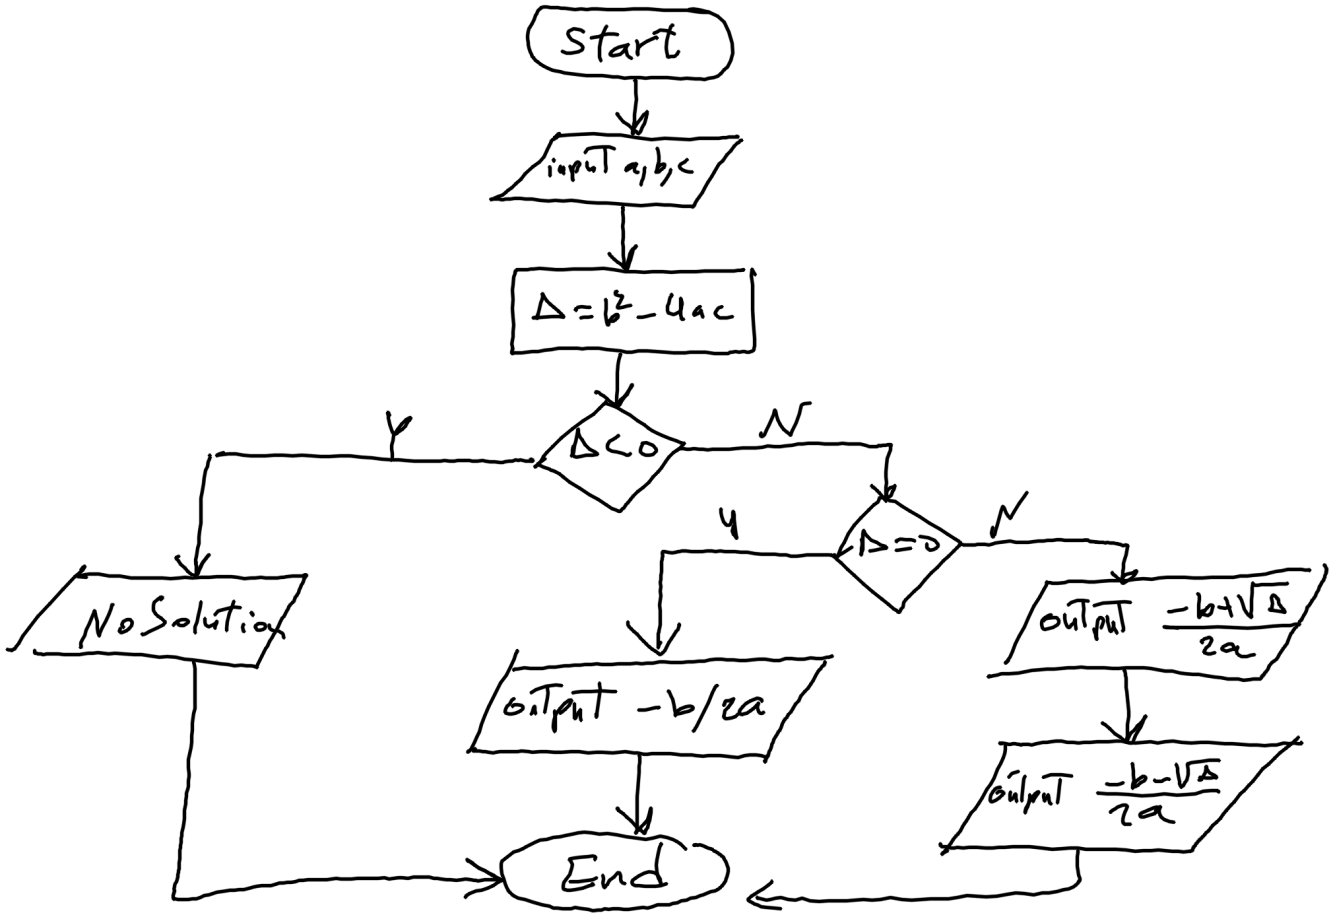 Start
input a, b, c
Δ = b² - 4ac
Y
N
Δ < 0
y
N
Δ = 0
No Solution
output (-b+√Δ)/2a
output -b/2a
output (-b-√Δ)/2a
End